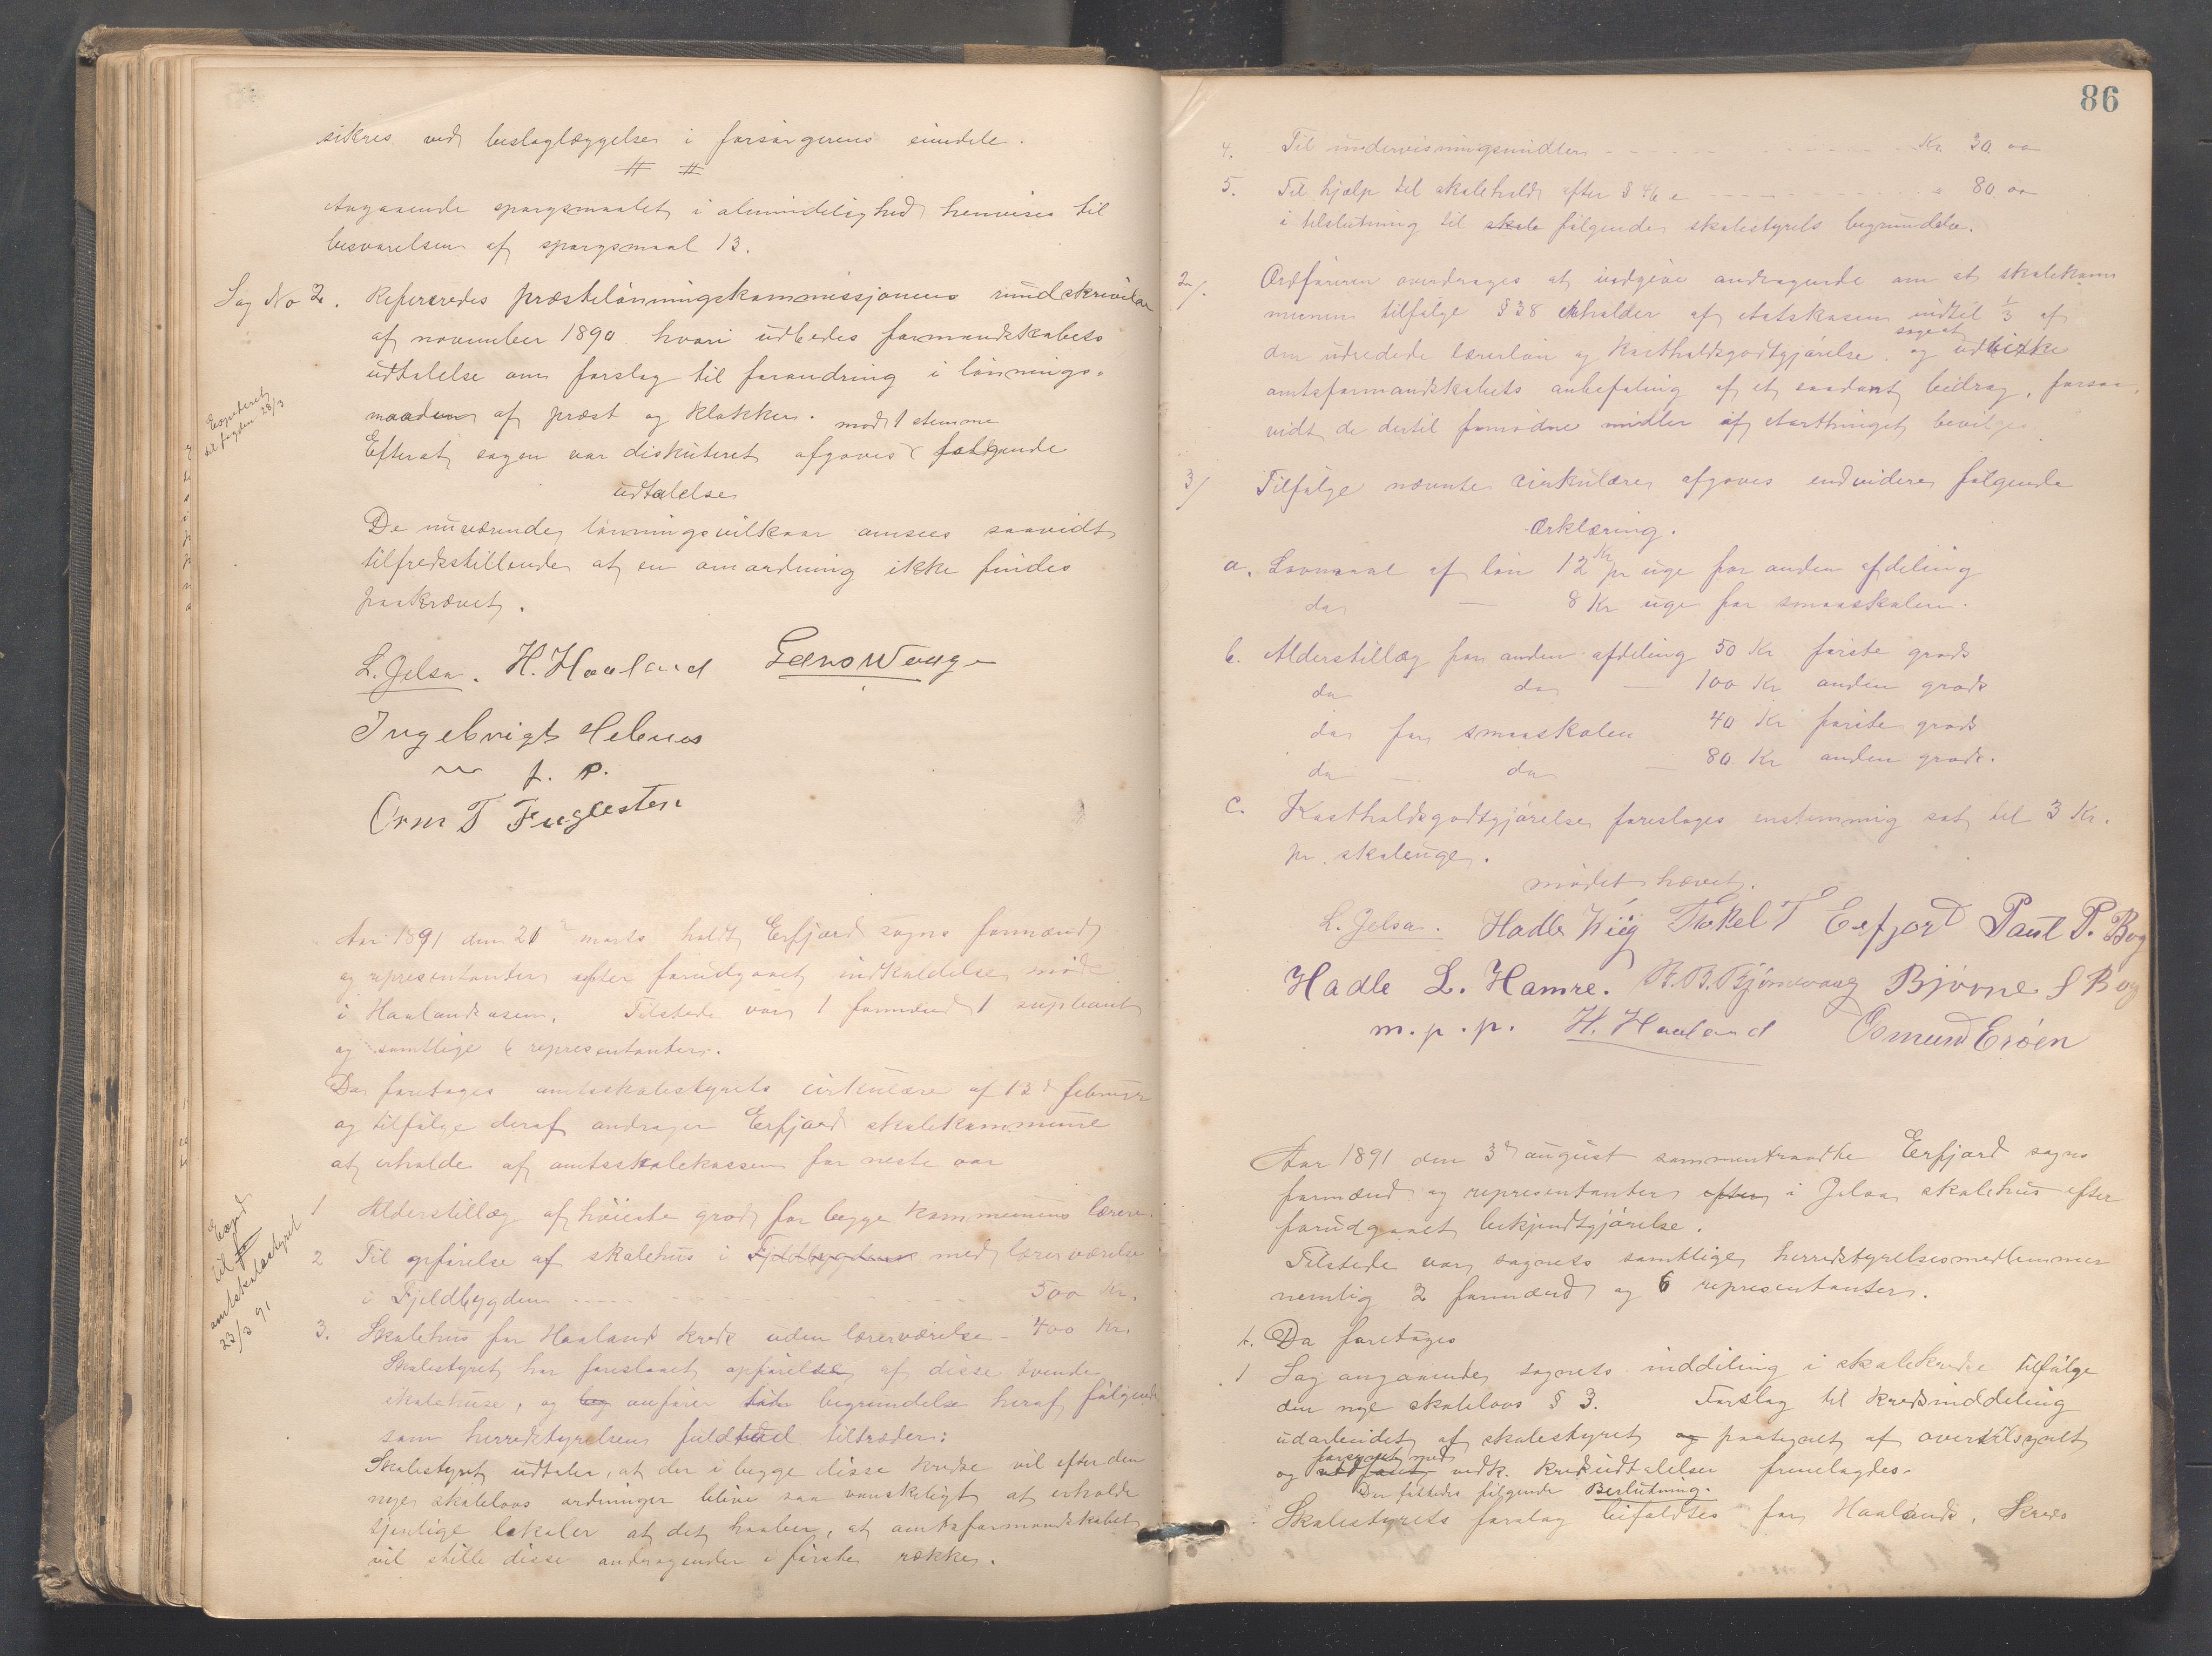 sikres ved beslaglæggelse i forsørgerens eiendele.
# #
Angaaende spørgsmaalet i almindelighed henvises til
besvarelsen af spørgsmaal 13.
Sag No 2. Refereredes præstelønningskommissjonens rundskrivelse
af november 1890 hvori udbedes formandskabets
udtalelse om forslag til forandring i lønnings-
maaden af præst og klokker.
mod 1 stemme
Efterat sagen var diskuteret afgoves følgende
udtalelse
De nuværende lønningsvilkaar ansees saavidt
tilfredsstillende at en omordning ikke findes
paakrævet.
Expederet
til fogden 28/3
L. Jelsa. H. Haaland
Ingebrigt Helenes
f. P.
Orm T Fuglesten
Aar 1891 den 21 marts holdt Erfjord sogns formænd
og representanter efter forudgaaet indkaldelse møde
i Haalandsosen. Tilstede var 1 formænd 1 supleant
og samtlige 6 representanter.
Da foretoges amtsskolestyrets cirkulære af 13d februar
og tilfølge deraf andrager Erfjord skolekommune
at erholde af amtsskolekassen for neste aar
1 Alderstillæg af høieste grad for begge kommunens lærere.
2 Til opførelse af skolehus i Fjeldbygden med lærerværelse
i Fjeldbygden 500 Kr.
3. Skolehus for Haaland kreds uden lærerværelse - 400 Kr.
Exped
til
amtskolestyret
23/3 91
Skolestyret har foreslaaet opførelse af disse tvende
skolehuse, og anfører begrundelse heraf følgende
som herredstyrelsen fuldtud tiltræder:
Skolestyret udtaler, at der i begge disse kredse vil efter den
nye skolelovs ordninger blive saa vanskeligt at erholde
tjenlige lokaler at det haaber, at amtsformandskabet
vil stille disse andragender i første række.
86
4. Til undervisningsmidler Kr. 30 00
5. Til hjælp til skolehold efter § 46 e " 80 00
i tilslutning til skole følgende skolestyrets begrundelse.
2/. Ordføreren overdrages at indgive andragende om at skolekom
munen tilfølge § 38 erholder af statskassen indtil 1/3 af
den udredede lærerløn og kostholdsgodtgjørelse.
søge at
og udvirke
amtsformandskabets anbefaling af et saadant bidrag, forsaa
vidt de dertil fornødne midler af storthinget bevilges
3/ Tilfølge nævnte cirkulære afgoves endvidere følgende
Erklæring.
a. Lovmaal af løn 12 Kr pr uge for anden afdeling
do — 8 Kr uge for smaaskolen.
b. Alderstillæg for anden afdeling 50 Kr første grad
do do — 100 Kr anden grad
do for smaaskolen 40 Kr første grad
do — do — 80 Kr anden grad.
c. Kostholdsgodtgjørelse foreslages enstemmig sat til 3 Kr.
pr. skoleuge.
mødet hævet.
L. Jelsa. Hadle Kiig Torkel T Erfjord Paul P. Bog
Hadle L. Hamre. B. Bjørnevaag Bjørne S Bog
m.p.p. H. Haaland Osmund Erøen
Aar 1891 den 3d august sammentraadte Erfjord sogns
formænd og representanter efter i Jelsa skolehus efter
forudgaaet bekjendtgjørelse.
Tilstede var sognets samtlige herredstyrelsesmedlemmer
nemlig 2 formænd og 6 representanter.
Da foretoges
1 Sag angaaende sognets inddeling i skolekredse tilfølge
den nye skolelovs § 3. Forslag til kredsinddeling
udarbeidet af skolestyret og paategnet af overtilsynet
forsynet med
og vedk. kredsudtalelser fremlagdes.
Der fattedes følgende Beslutning.
Skolestyrets forslag bifaldtes for Haalands, Skreds